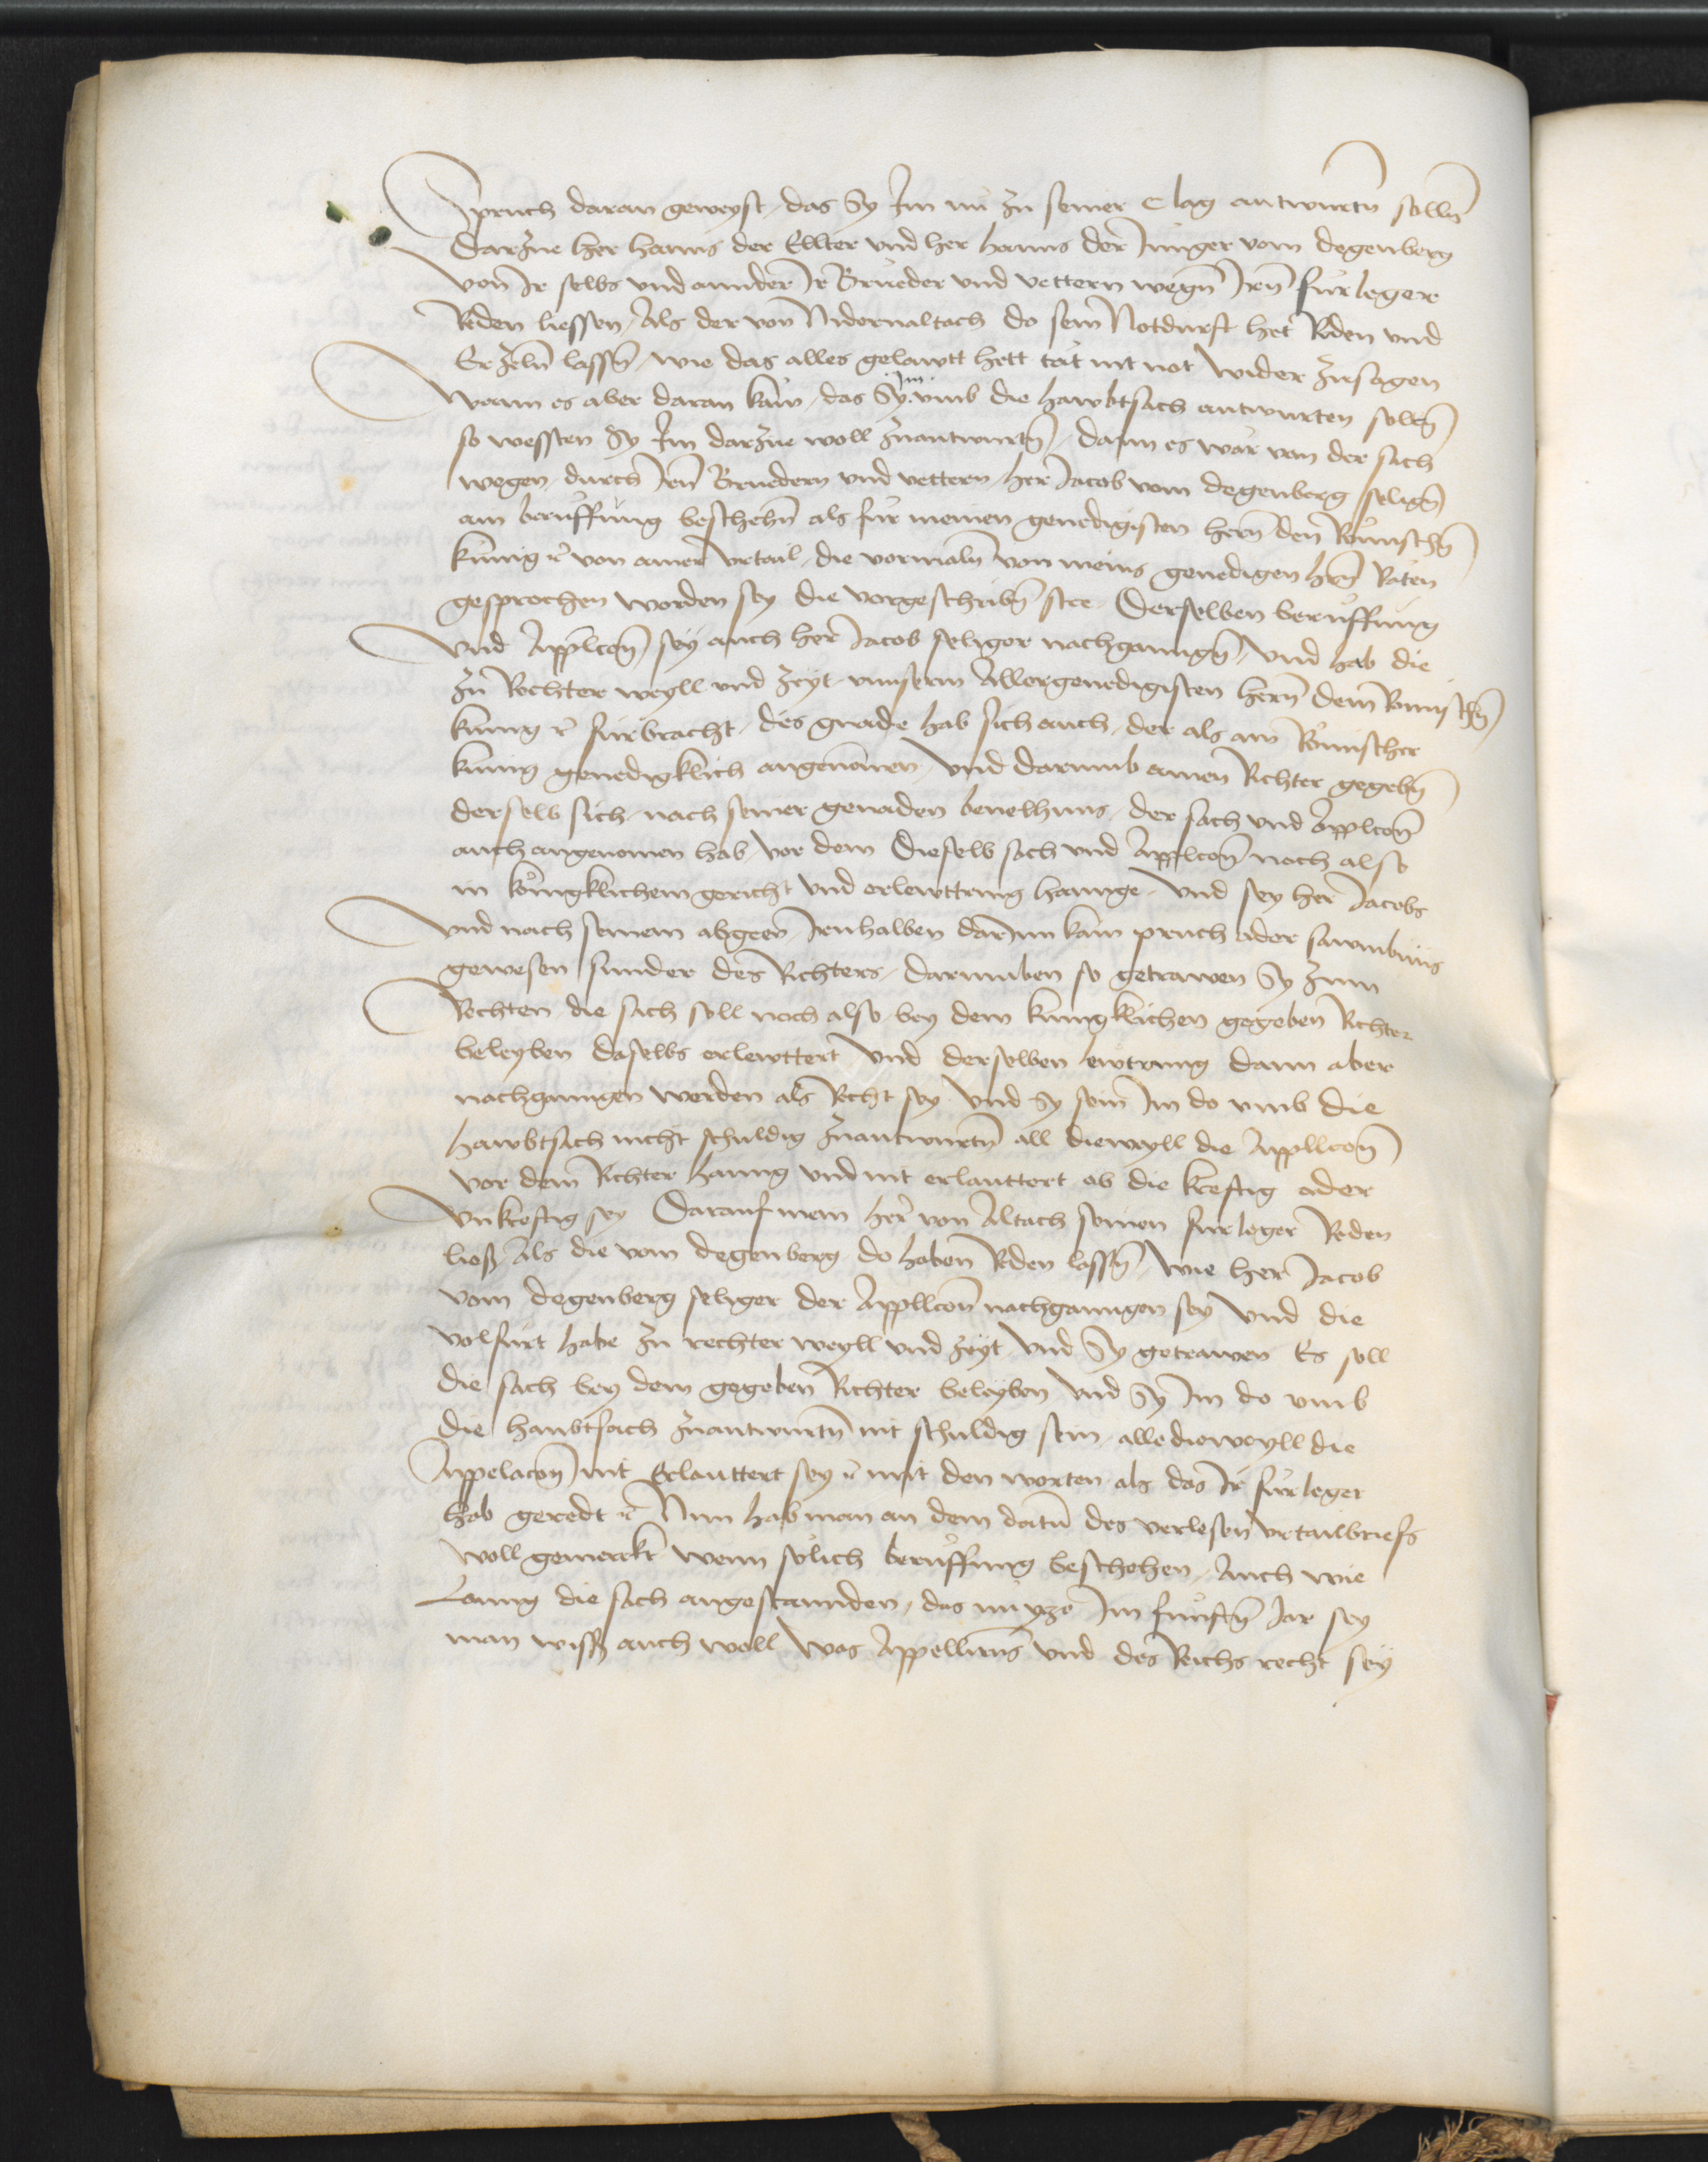 Spruch daran geweyst, das Sy Im nu zu seiner Clag antwurtn̄ solln̄
Darzue her hanns der Ellter vnd her hanns der Junger vom degenberg
von Ir selbs vnd annder Ir Brueder vnd vettern wegn̄ Irn̄ furleger
Reden liessen, Als der von Nidernaltach do sein Notdurft het Reden vnd
Erzeln̄ lassn̄, wie das alles gelawtt hett tät nit not wider zusagen
wenn es aber daran käm, das Sy Im vmb die hawbtsach antwurten solltn̄
so wessten Sy Im darzue woll zuantwurtn̄, dann es wär von der sach
wegen, durch Irn̄ Bruedern vnd vettern, her Jacob vom degenberg selign̄
ain beruffung beschehn̄ als für meinen genedigisten hern̄ den Römischn̄
künig ꝛc von ainer vrtail, die vormaln̄ von meins genedigen hrn̄ Räten
gesprochen worden sey die vorgeschribn̄ stee. Derselben beruffung
vnd Applcōn̄ sey auch her Jacob seliger nachganngn̄, vnd hab die
zu Rechter weyll vnd zeyt, vnnserm Allergenedigisten hern̄ dem Römischn̄
kunig ꝛc fürbracht, des gnade hab sich auch, der als ain Römischer
künig genedigklich angenomen, vnd darumb ainen Richter gegebn̄
derselb sich, nach seiner genaden beuelhnus, der sach vnd Applcōn̄
auch angenomen hab, vor dem dieselb sach vnd Applcōn̄ noch also
in königklichem gericht vnd erlewttrung hannge, vnd sey her Jacobs
vnd nach seinem abgeen Irnhalben darInn kain pruch oder sawmbnus
gewesen sunder des Richters, darumben so getrawen Sy zum
Rechten die sach soll noch also bey dem kunigklichen gegeben Richter
beleyben daselbs erlewttert vnd derselben lewtrung dann aber
nachganngen werden als Recht sey vnd Sy sein Im do vmb die
hawbtsach nicht schuldig zuantwurtn̄ all dieweyll die Appllcōn̄
vor dem Richter hanng vnd nit erlauttert ob die kreftig oder
vnkreftig sey Darauf mein her von Altach seinen furleger Reden
ließ Als die vom degenberg do haben Reden lassn̄ wie her Jacob
vom degenberg seliger der Appllcōn̄ nachganngen sey vnd die
volfürt habe zu rechter weyll vnd zeyt vnd Sy getrawen Es soll
die sach bey dem gegeben Richter beleyben vnd Sy Im do vmb
die haubtsach zuantwurtn̄ nit schuldig sein alle dieweyll die
Appelacōn̄ nit Erlauttert sey ꝛc mit den worten als das Ir fürleger
hab geredt ꝛc Nun hab man an dem datū des verlesen vrtailbriefs
woll gemerckt wenn solich beruffung beschehen, Auch wie
Lanng die sach angestannden, das nu yzo Im funftn̄ Jar sey
man wiss auch woll was Appellirns vnd des Reichs recht sey